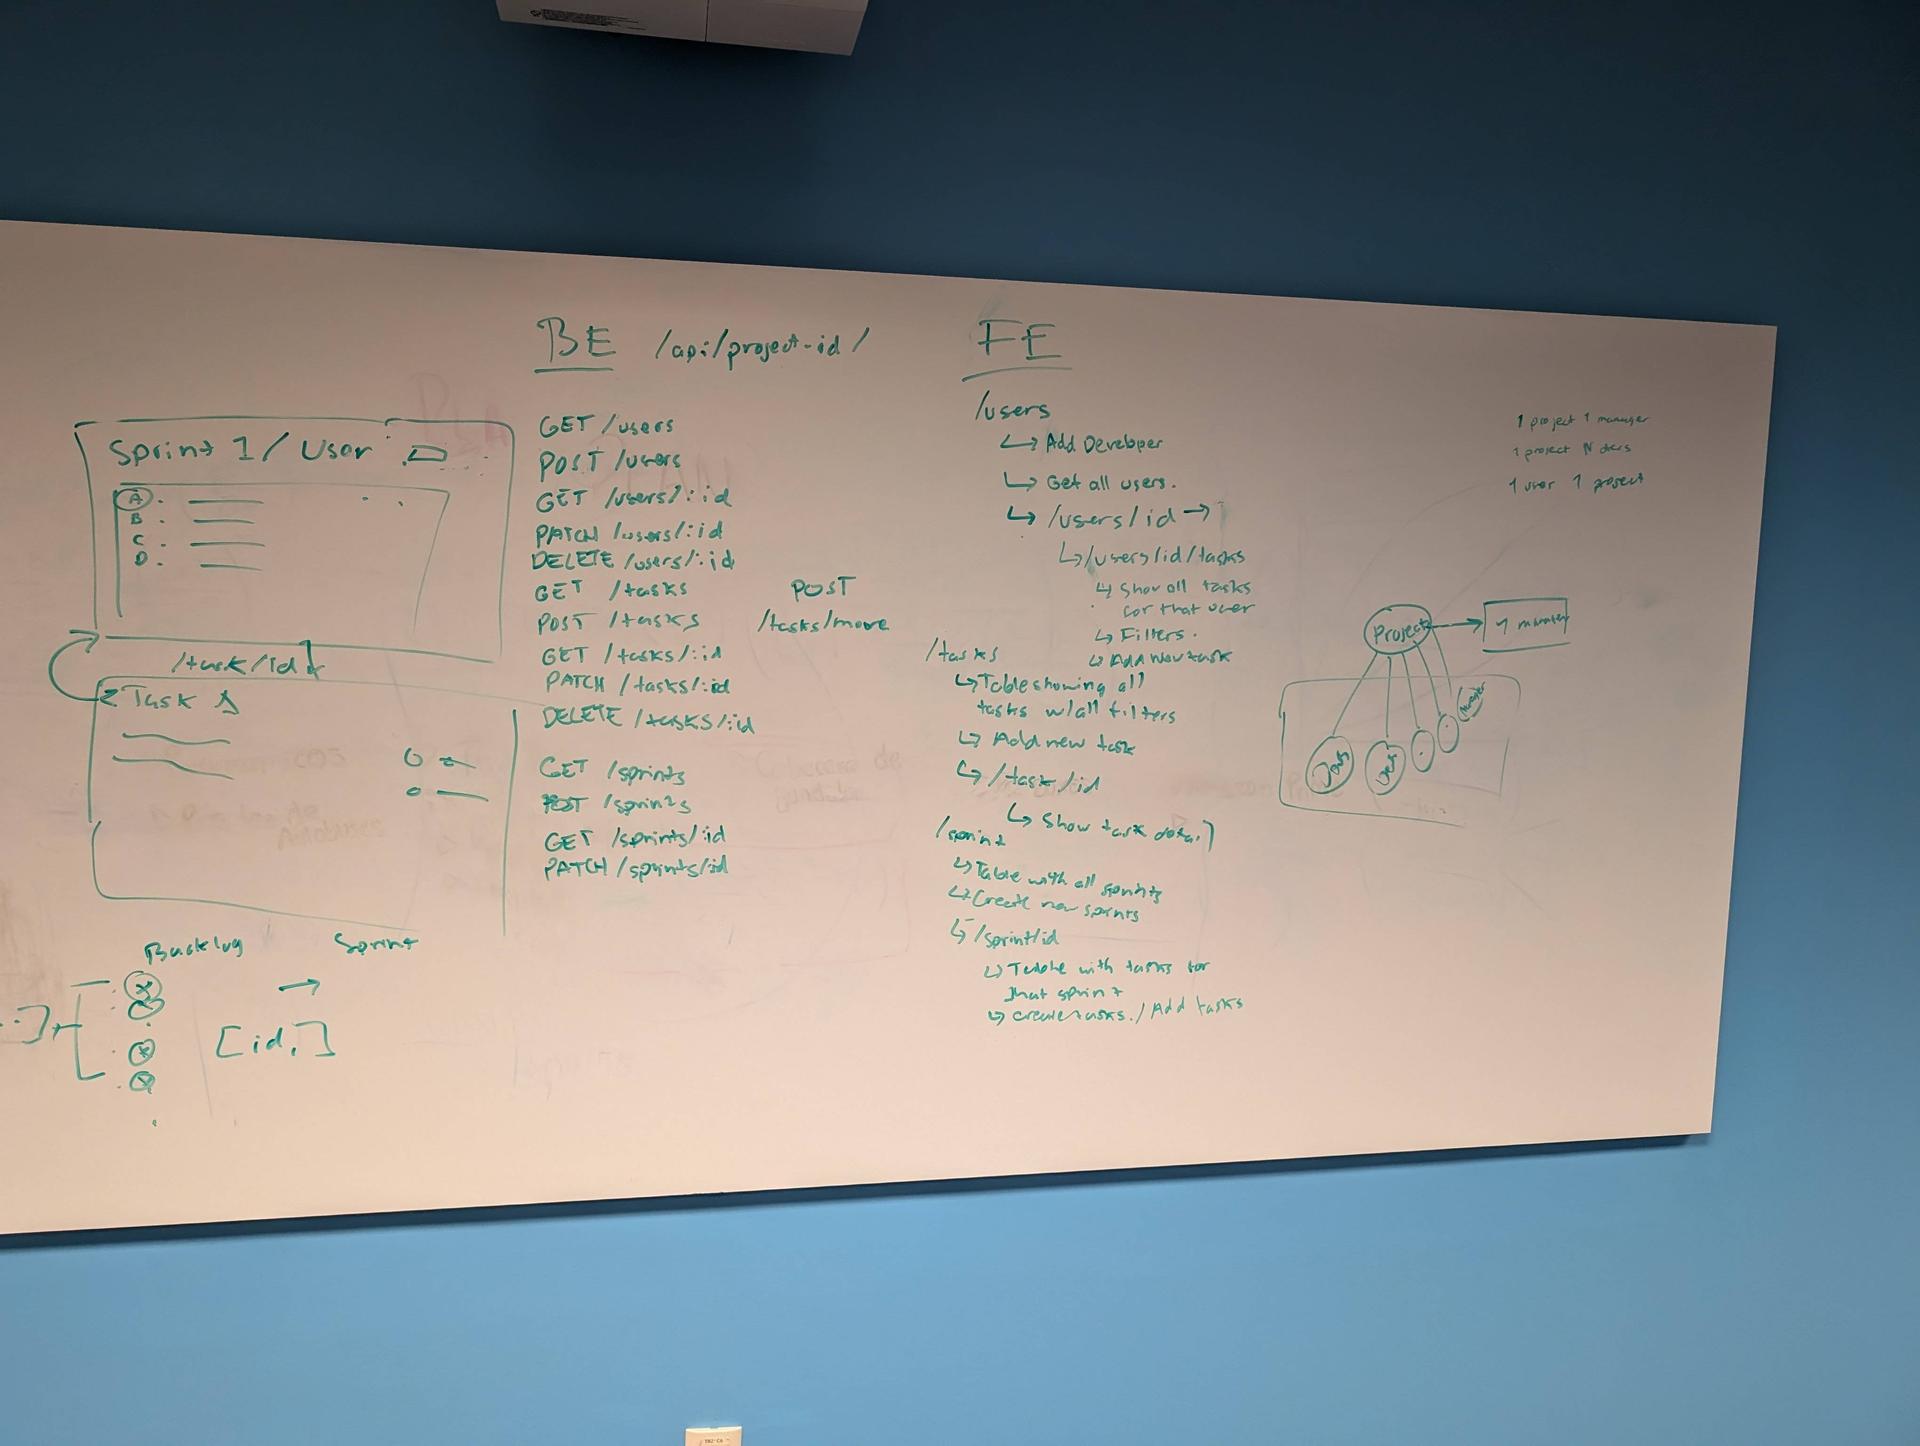 Sprint 1 / User
A.
B.
C.
D.
/task/id
Task A
Backlog
Sprint
[id, ]
BE /api/project-id/
GET /users
POST /users
GET /users/:id
PATCH /users/:id
DELETE /users/:id
GET /tasks
POST /tasks
GET /tasks/:id
PATCH /tasks/:id
DELETE /tasks/:id
GET /sprints
POST /sprints
GET /sprints/:id
PATCH /sprints/:id
POST
/tasks/move
FE
/users
↳ Add Developer
↳ Get all users.
↳ /users/id →
↳ /users/id/tasks
↳ Show all tasks
for that user
↳ Filters.
↳ Add New task
/tasks
↳ Table showing all
tasks w/all filters
↳ Add new task
↳ /task/id
↳ Show task detail
/sprint
↳ Table with all sprints
↳ Create new sprints
↳ /sprint/id
↳ Table with tasks for
that sprint
↳ create tasks. / Add tasks
1 project 1 manager
1 project N devs
1 user 1 project
Project
1 manager